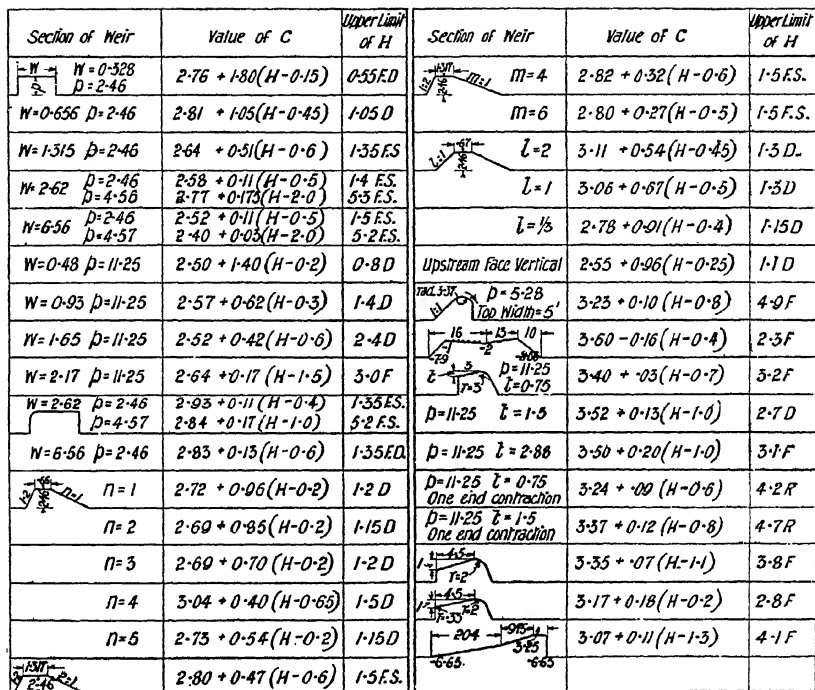 Section of Weir Value of C Upper Limit of H
W W=0·328 p=2·46 2·76 + 1·80(H-0·15) 0·55F.D
W=0·656 p=2·46 2·81 + 1·05(H-0·45) 1·05D
W=1·315 p=2·46 2·64 + 0·51(H-0·6) 1·35F.S
W=2·62 p=2·46 2·58 + 0·11(H-0·5) 1·4 F.S.
p=4·56 2·77 + 0·175(H-2·0) 5·3 F.S.
W=6·56 p=2·46 2·52 + 0·11(H-0·5) 1·5 F.S.
p=4·57 2·40 + 0·03(H-2·0) 5·2 F.S.
W=0·48 p=11·25 2·50 + 1·40(H-0·2) 0·8D
W=0·93 p=11·25 2·57 + 0·62(H-0·3) 1·4D
W=1·65 p=11·25 2·52 + 0·42(H-0·6) 2·4D
W=2·17 p=11·25 2·64 + 0·17(H-1·5) 3·0F
W=2·62 p=2·46 2·93 + 0·11(H-0·4) 1·35F.S.
p=4·57 2·84 + 0·17(H-1·0) 5·2 F.S.
W=6·56 p=2·46 2·83 + 0·13(H-0·6) 1·35F.D.
1:2 2·46 n:1 n=1 2·72 + 0·96(H-0·2) 1·2D
n=2 2·69 + 0·85(H-0·2) 1·15D
n=3 2·69 + 0·70(H-0·2) 1·2D
n=4 3·04 + 0·40(H-0·65) 1·5D
n=5 2·73 + 0·54(H-0·2) 1·15D
1·317 2·46 2·80 + 0·47(H-0·6) 1·5F.S.
Section of Weir Value of C Upper Limit of H
1·317 1:2 2·46 m:1 m=4 2·82 + 0·32(H-0·6) 1·5F.S.
m=6 2·80 + 0·27(H-0·5) 1·5F.S.
·67 l:1 2·46 l=2 3·11 + 0·54(H-0·45) 1·3D.
l=1 3·06 + 0·67(H-0·5) 1·3D
l=⅓ 2·78 + 0·91(H-0·4) 1·15D
Upstream Face Vertical 2·55 + 0·96(H-0·25) 1·1D
rad. 3·37 1:1 p=5·28 Top Width=5' 3·23 + 0·10(H-0·8) 4·9F
16 15 10 ·79 ·2 3·60 - 0·16(H-0·4) 2·3F
t 3 r=3 p=11·25 t=0·75 3·40 + ·03(H-0·7) 3·2F
p=11·25 t=1·5 3·52 + 0·13(H-1·0) 2·7D
p=11·25 t=2·88 3·50 + 0·20(H-1·0) 3·1F
p=11·25 t=0·75 One end contraction 3·24 + ·09(H-0·6) 4·2R
p=11·25 t=1·5 One end contraction 3·37 + 0·12(H-0·8) 4·7R
4·5 r=2 3·35 + ·07(H-1·1) 3·8F
4·5 r=·33 r=2 3·17 + 0·18(H-0·2) 2·8F
204 9·75 3·25 6·65 6·65 3·07 + 0·11(H-1·3) 4·1F